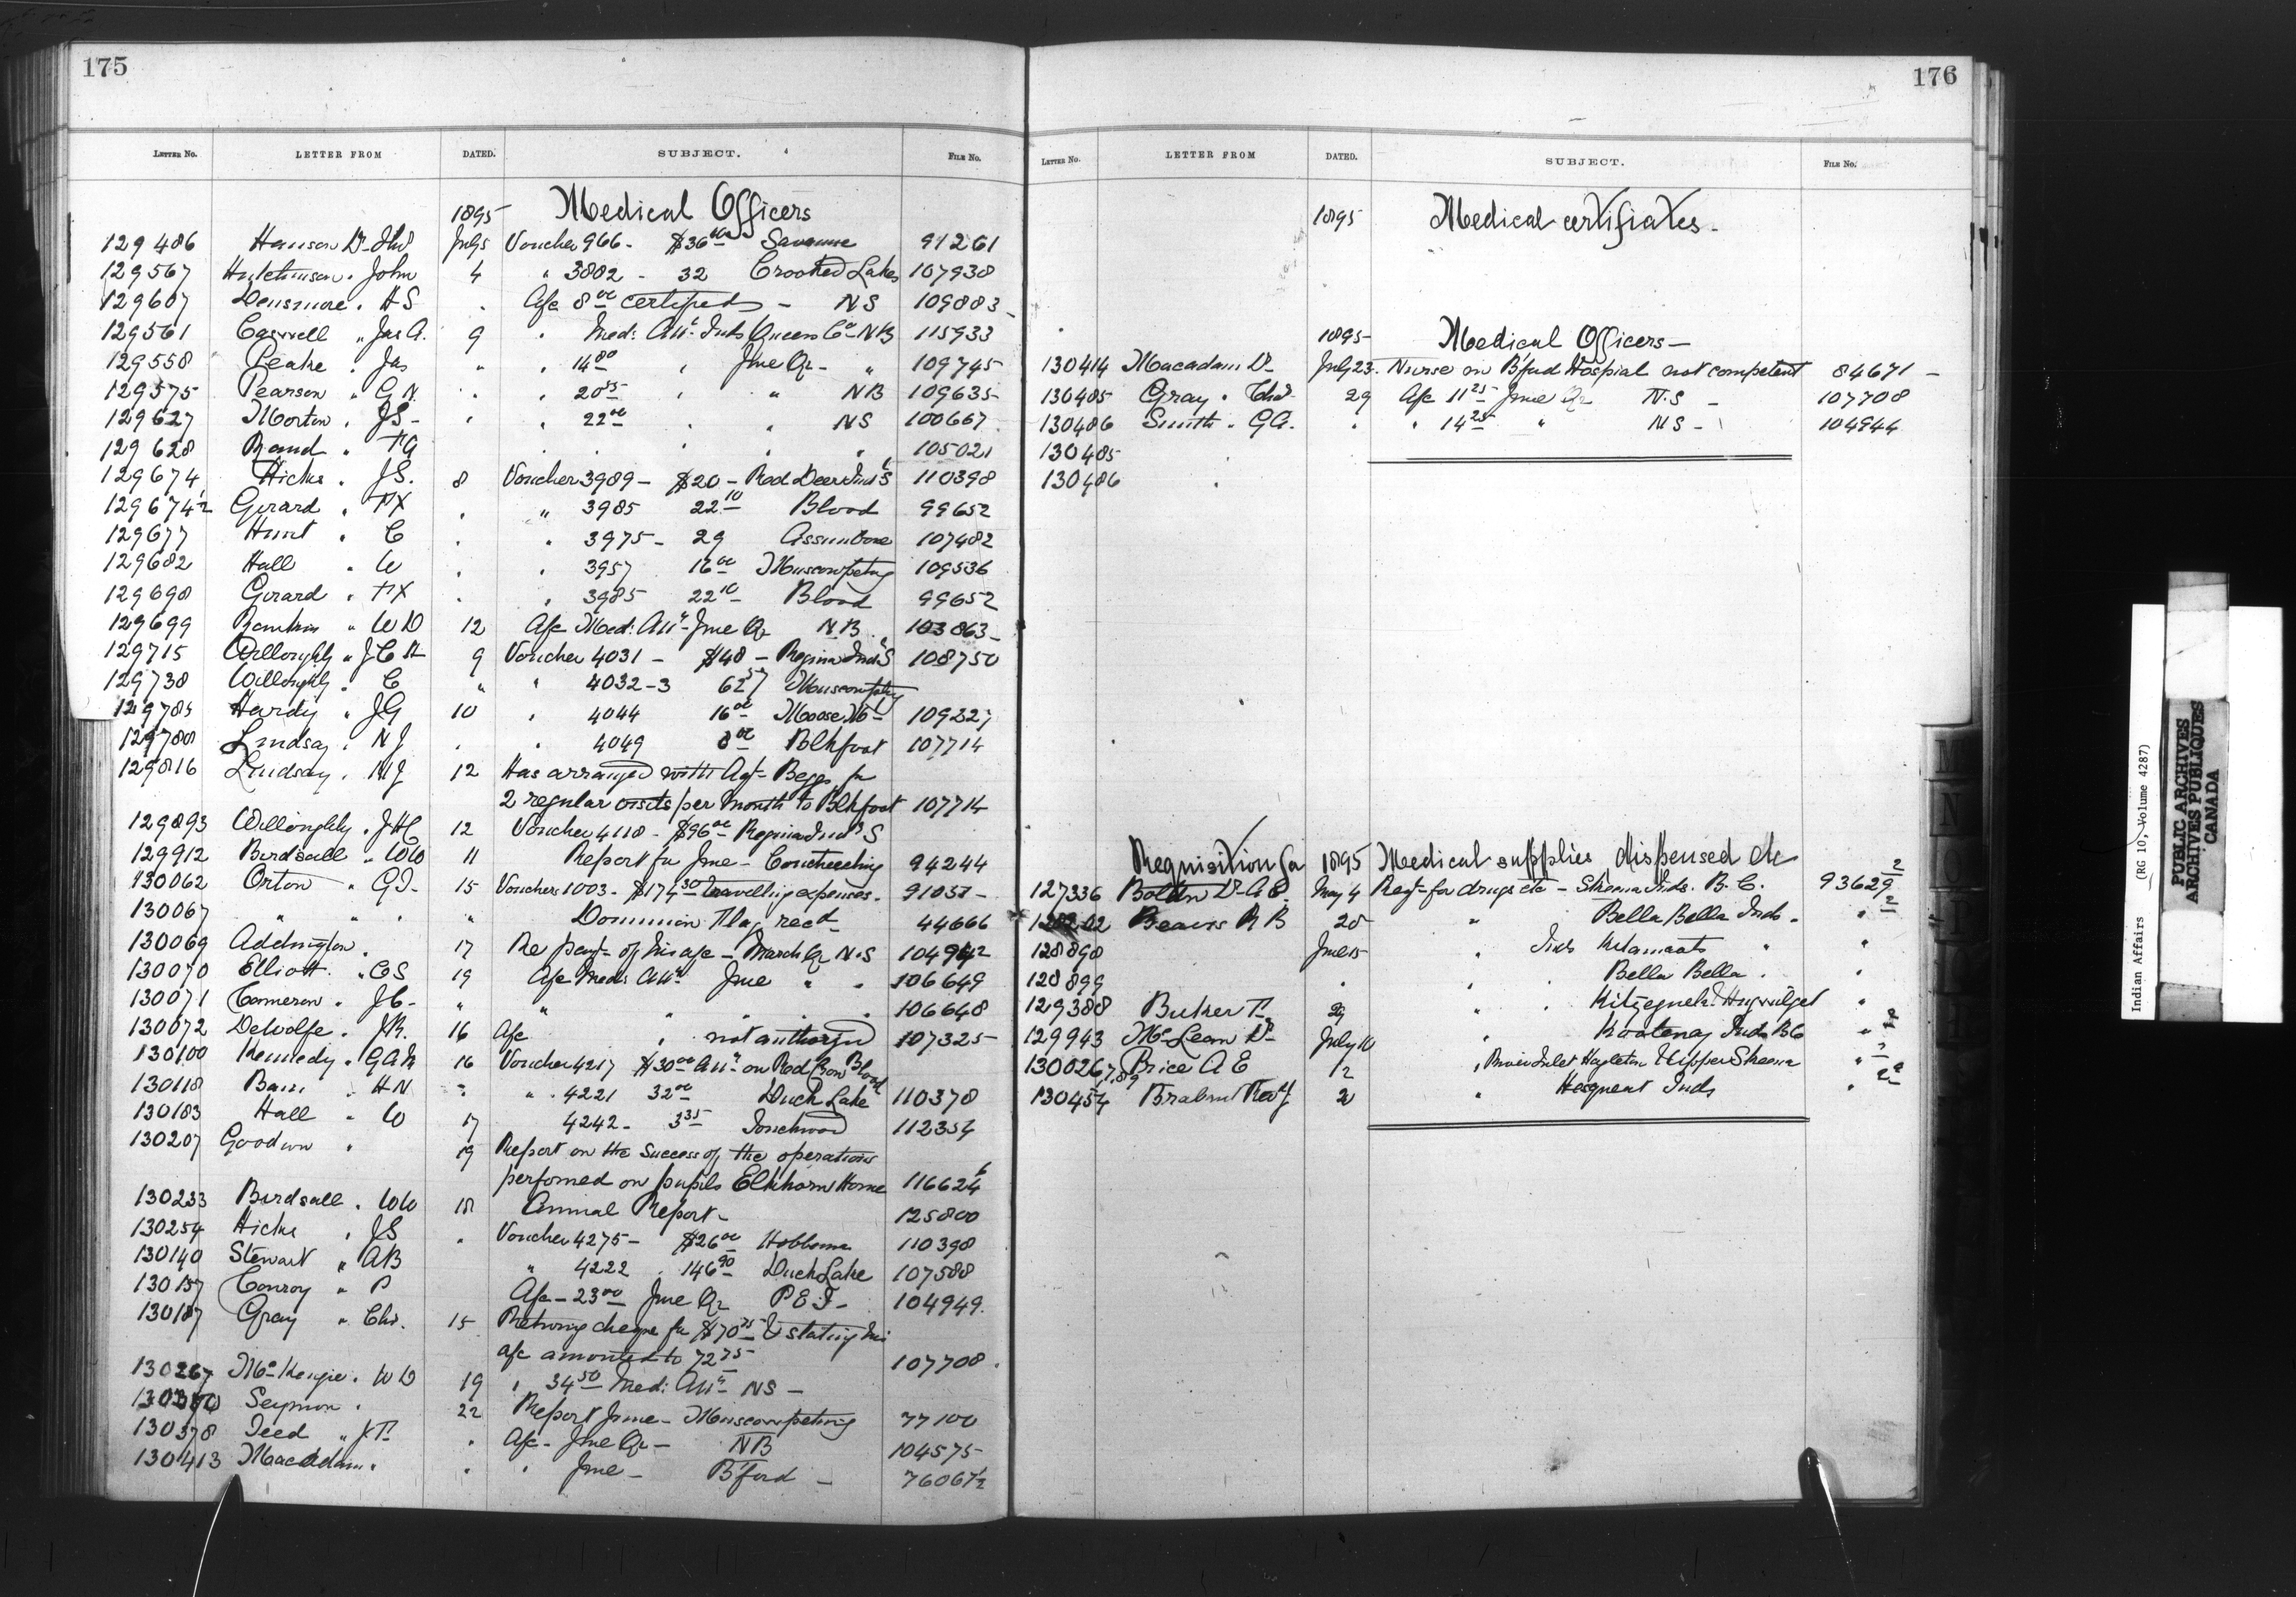 175
LETTER No. LETTER FROM DATED. SUBJECT. FILE No.
1895 Medical Officers
129486 Hanson Dr Thos July 5 Voucher 966 - $36 00 Savanne 91261
129567 Hutchinson " John 4 " 3882 - 32 Crooked Lakes 107938
129607 Densmore " H S " A/c 8 00 certified - NS 109883
129561 Caswell " Jas A. 9 " Med: Att ce Inds Queens Co NB 115933
129558 Peake " Jas " " 14 80 " June Qr - " 109745
129575 Pearson " G N. " " 20 25 " " NB 109635
129627 Morton " J S - " " 22 00 " " NS 100667
129628 Rand " F A " " " " 105021
129674 Hicks " J S. 8 Voucher 3989 - $20 - Red Deer Ind S 110398
129674½ Girard " F X " " 3985 22 10 Blood 99652
129677 Hunt " C " " 3975 - 29 Assiniboine 107482
129682 Hall " W " " 3957 16 00 Muscowpetung 109536
129698 Girard " F X " " 3985 22 10 Blood 99652
129699 Rankin " W D 12 A/c Med: Att ce June Qr NB 103863
129715 Willoughby " J C H 9 Voucher 4031 - $48 - Regina Ind S 108750
129738 Willoughby " C " " 4032-3 62 57 Muscowptg
129785 Hardy " J G 10 " 4044 16 00 Moose Mt
129788 Lindsay " N J " " 4049 8 00 Blkfoot 107714
129816 Lindsay " N J 12 Has arranged with Agt Begg for
2 regular visits per month to Blkfoot 107714
129893 Willoughby " J H C 12 Voucher 4118 - $96 00 Regina Ind S
129912 Birdsall " W W 11 Report for June - Couchiching 94244
130062 Orton " G T - 15 Vouchers 1003 - $174 30 travelling expenses - 91037
130067 " " " " Dominion Flag recd 44666
130069 Addington " 17 Re payt of his a/c - March Qr N.S 104942
130070 Elliott " C S 19 A/c Med: Att ce June " " 106649
130071 Cameron " J C - " " " " " 106648
130072 DeWolfe " J R. 16 A/c " not authorized 107325
130100 Kennedy " G A 16 Voucher 4217 $30 00 Att ce on Red Crow Blood
130118 Bain " H N " " 4221 32 00 Duck Lake 110378
130183 Hall " W 17 4242 - 3 35 Touchwood 112354
130207 Goodwin " 19 Report on the success of the operations
performed on pupils Elkhorn Home 116624
130233 Birdsall " W W 18 Annual Report - 125800
130254 Hicks " J S " Voucher 4275 - $26 00 Hobbema 110398
130140 Stewart " A B " 4222 " 146 90 Duck Lake 107588
130157 Conroy " P A/c - 23 00 June Qr P E I - 104949
130187 Gray " Chs. 15 Returning cheque for $70 75 & stating his
a/c amounted to 72 75 107708
130267 McKenzie " W D 19 " 34 50 Med: Att ce NS -
Seymour " 22 Report June - Muscowpetung 77100
130378 Teed " J F " A/c - June Qr - NB 104575
130413 Macadam " " " June - B'ford - 76067½
176
LETTER No. LETTER FROM DATED. SUBJECT. FILE No.
1895 Medical certifiates.
1895 Medical Officers -
130414 Macadam Dr July 23 - Nurse in B'ford Hospial not competent 84671 -
130485 Gray " Chs 29 A/c 11 25 June Qr N.S - 107708
130486 Smith " G A. " " 14 25 " NS - 104944
130485
130486 "
Requisition for 1895 Medical supplies dispensed etc
127336 Bolton Dr A E. May 4 Reqn for drugs etc - Skeena Inds. B.C. 93629 2
Beavis R B 25 " Bella Bella Inds. " 2
128898 June 15 " Inds Kitamaats " "
128899 " " " Bella Bella . "
129388 Butler T 29 " " Kitzeguelá Hagwilget "
129943 McLean Dr July 10 " Kootenay Inds BC " 2
130026 7,8,9 Price A E 12 " Rivers Inlet Hazleton & Upper Skeena " 2
130454 Brabant Rev J 20 " Hesqueat Inds " 2
Indian Affairs (RG 10, Volume 4287)
PUBLIC ARCHIVES
ARCHIVES PUBLIQUES
CANADA